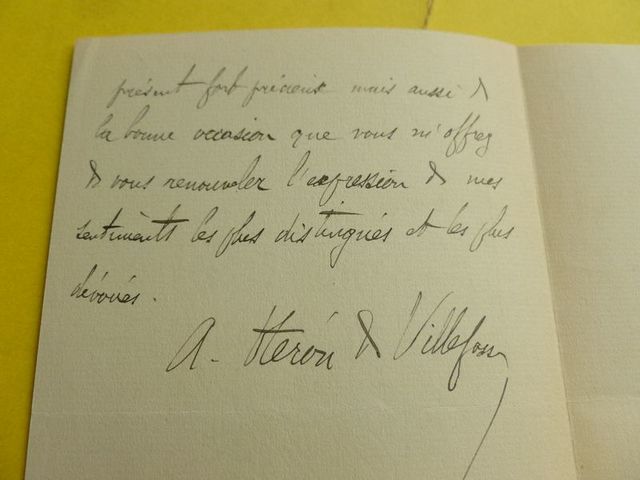 présent fort précieux mais aussi de
la bonne occasion que vous m'offrez
de vous renouveler l'expression de mes
sentiments les plus distingués et les plus
dévoués.
A. Héron de Villefosse